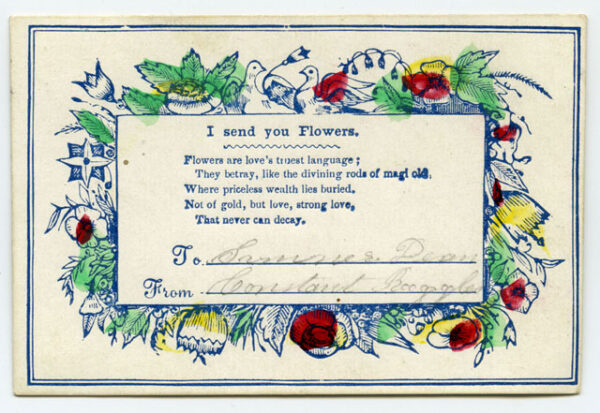 I send you Flowers.
Flowers are love's truest language;
They betray, like the divining rods of magi old,
Where priceless wealth lies buried,
Not of gold, but love, strong love,
That never can decay.
To Dean
From Constant